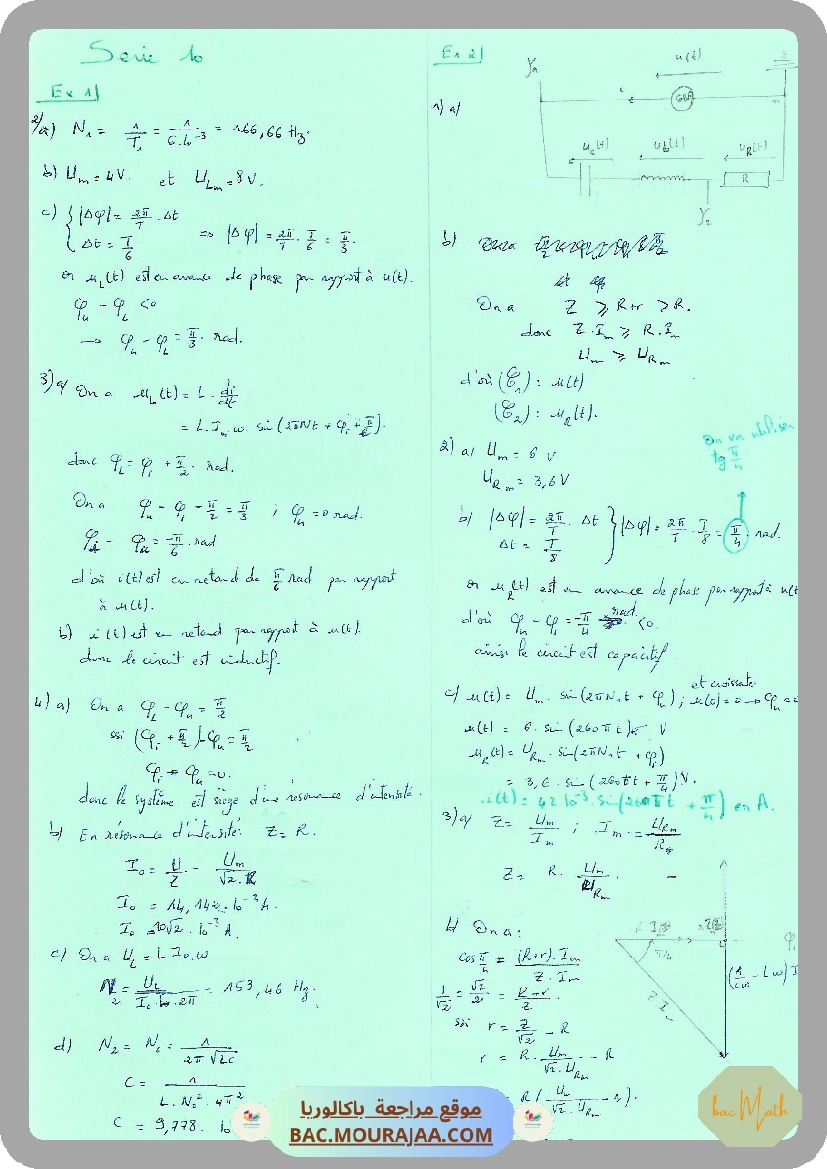 Serie 10
Ex 1)
2/a) N₁ = 1/T₁ = 1/6.10⁻³ = 166,66 Hz.
b) Um = 4V. et ULm = 8V.
c) { |Δφ| = 2π/T . Δt
Δt = T/6 => |Δφ| = 2π/T . T/6 = π/3.
or uL(t) est en avance de phase par rapport à u(t).
φu - φL < 0
→ φu - φL = π/3 rad.
3) a) On a uL(t) = L . di/dt
= L.Im.ω. sin(2πNt + φi + π/2).
donc φL = φi + π/2 rad.
On a φu - φi - π/2 = π/3 ; φu = 0 rad.
φi - φu = -π/6 rad
d'où i(t) est en retard de π/6 rad par rapport
à u(t).
b) i(t) est en retard par rapport à u(t).
donc le circuit est inductif.
4) a) On a φL - φu = π/2
ssi (φi + π/2) - φu = π/2
φi - φu = 0.
donc le système est siège d'une résonance d'intensité.
b) En résonance d'intensité: Z = R.
I₀ = U/Z = Um/√2.R
I₀ = 14,142.10⁻³ A.
I₀ = 10√2.10⁻³ A.
c) On a UL = L I₀.ω
N₂ = UL/I₀.L.2π = 153,46 Hz.
d) N₂ = N₀ = 1/2π√LC
C = 1/L.N₀².4π²
C = 9,778. 10
Ex 2)
1) a)
Y₁
u(t)
i
GBF
uC(t) ub(t) uR(t)
R
Y₂
b)
On a Z ≥ R+r > R.
donc Z.Im ≥ R.Im
Um ≥ URm
d'où (C₁) : u(t)
(C₂) : uR(t).
On va utiliser
tg π/4
2) a/ Um = 6 V
URm = 3,6 V
b) |Δφ| = 2π/T . Δt
Δt = T/8 } |Δφ| = 2π/T . T/8 = π/4 rad.
or uR(t) est en avance de phase par rapport à u(t
d'où φu - φi = -π/4 rad < 0.
ainsi le circuit est capacitif
c/ u(t) = Um . sin(2πN₁t + φu) ; u(0)=0 et croissate → φu = 0
u(t) = 6. sin(260πt) V
uR(t) = URm . sin(2πN₁t + φi)
= 3,6 . sin(260πt + π/4) V.
i(t) = 42.10⁻³. sin(260πt + π/4) en A.
3) a) Z = Um/Im ; Im = URm/R
Z = R. Um/URm .
b) On a:
cos π/4 = (R+r).Im / Z.Im
1/√2 = √2/2 = R+r/Z .
ssi r = Z/√2 - R
r = R. Um/√2.URm - R
= R( Um/√2.URm - 1).
R Im
π/4
Z Im
(1/Cω - Lω) I
φi
موقع مراجعة باكالوريا
BAC.MOURAJAA.COM
bac Math